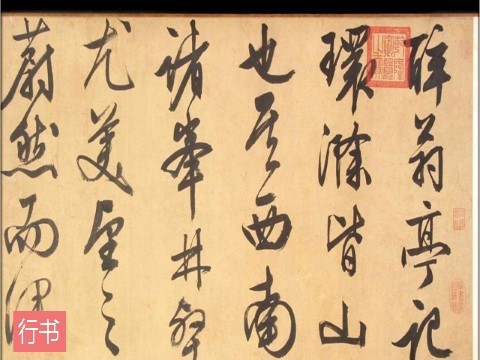 醉翁亭記
環滁皆山
也其西南
諸峯林壑
尤美望之
蔚然而深
行书